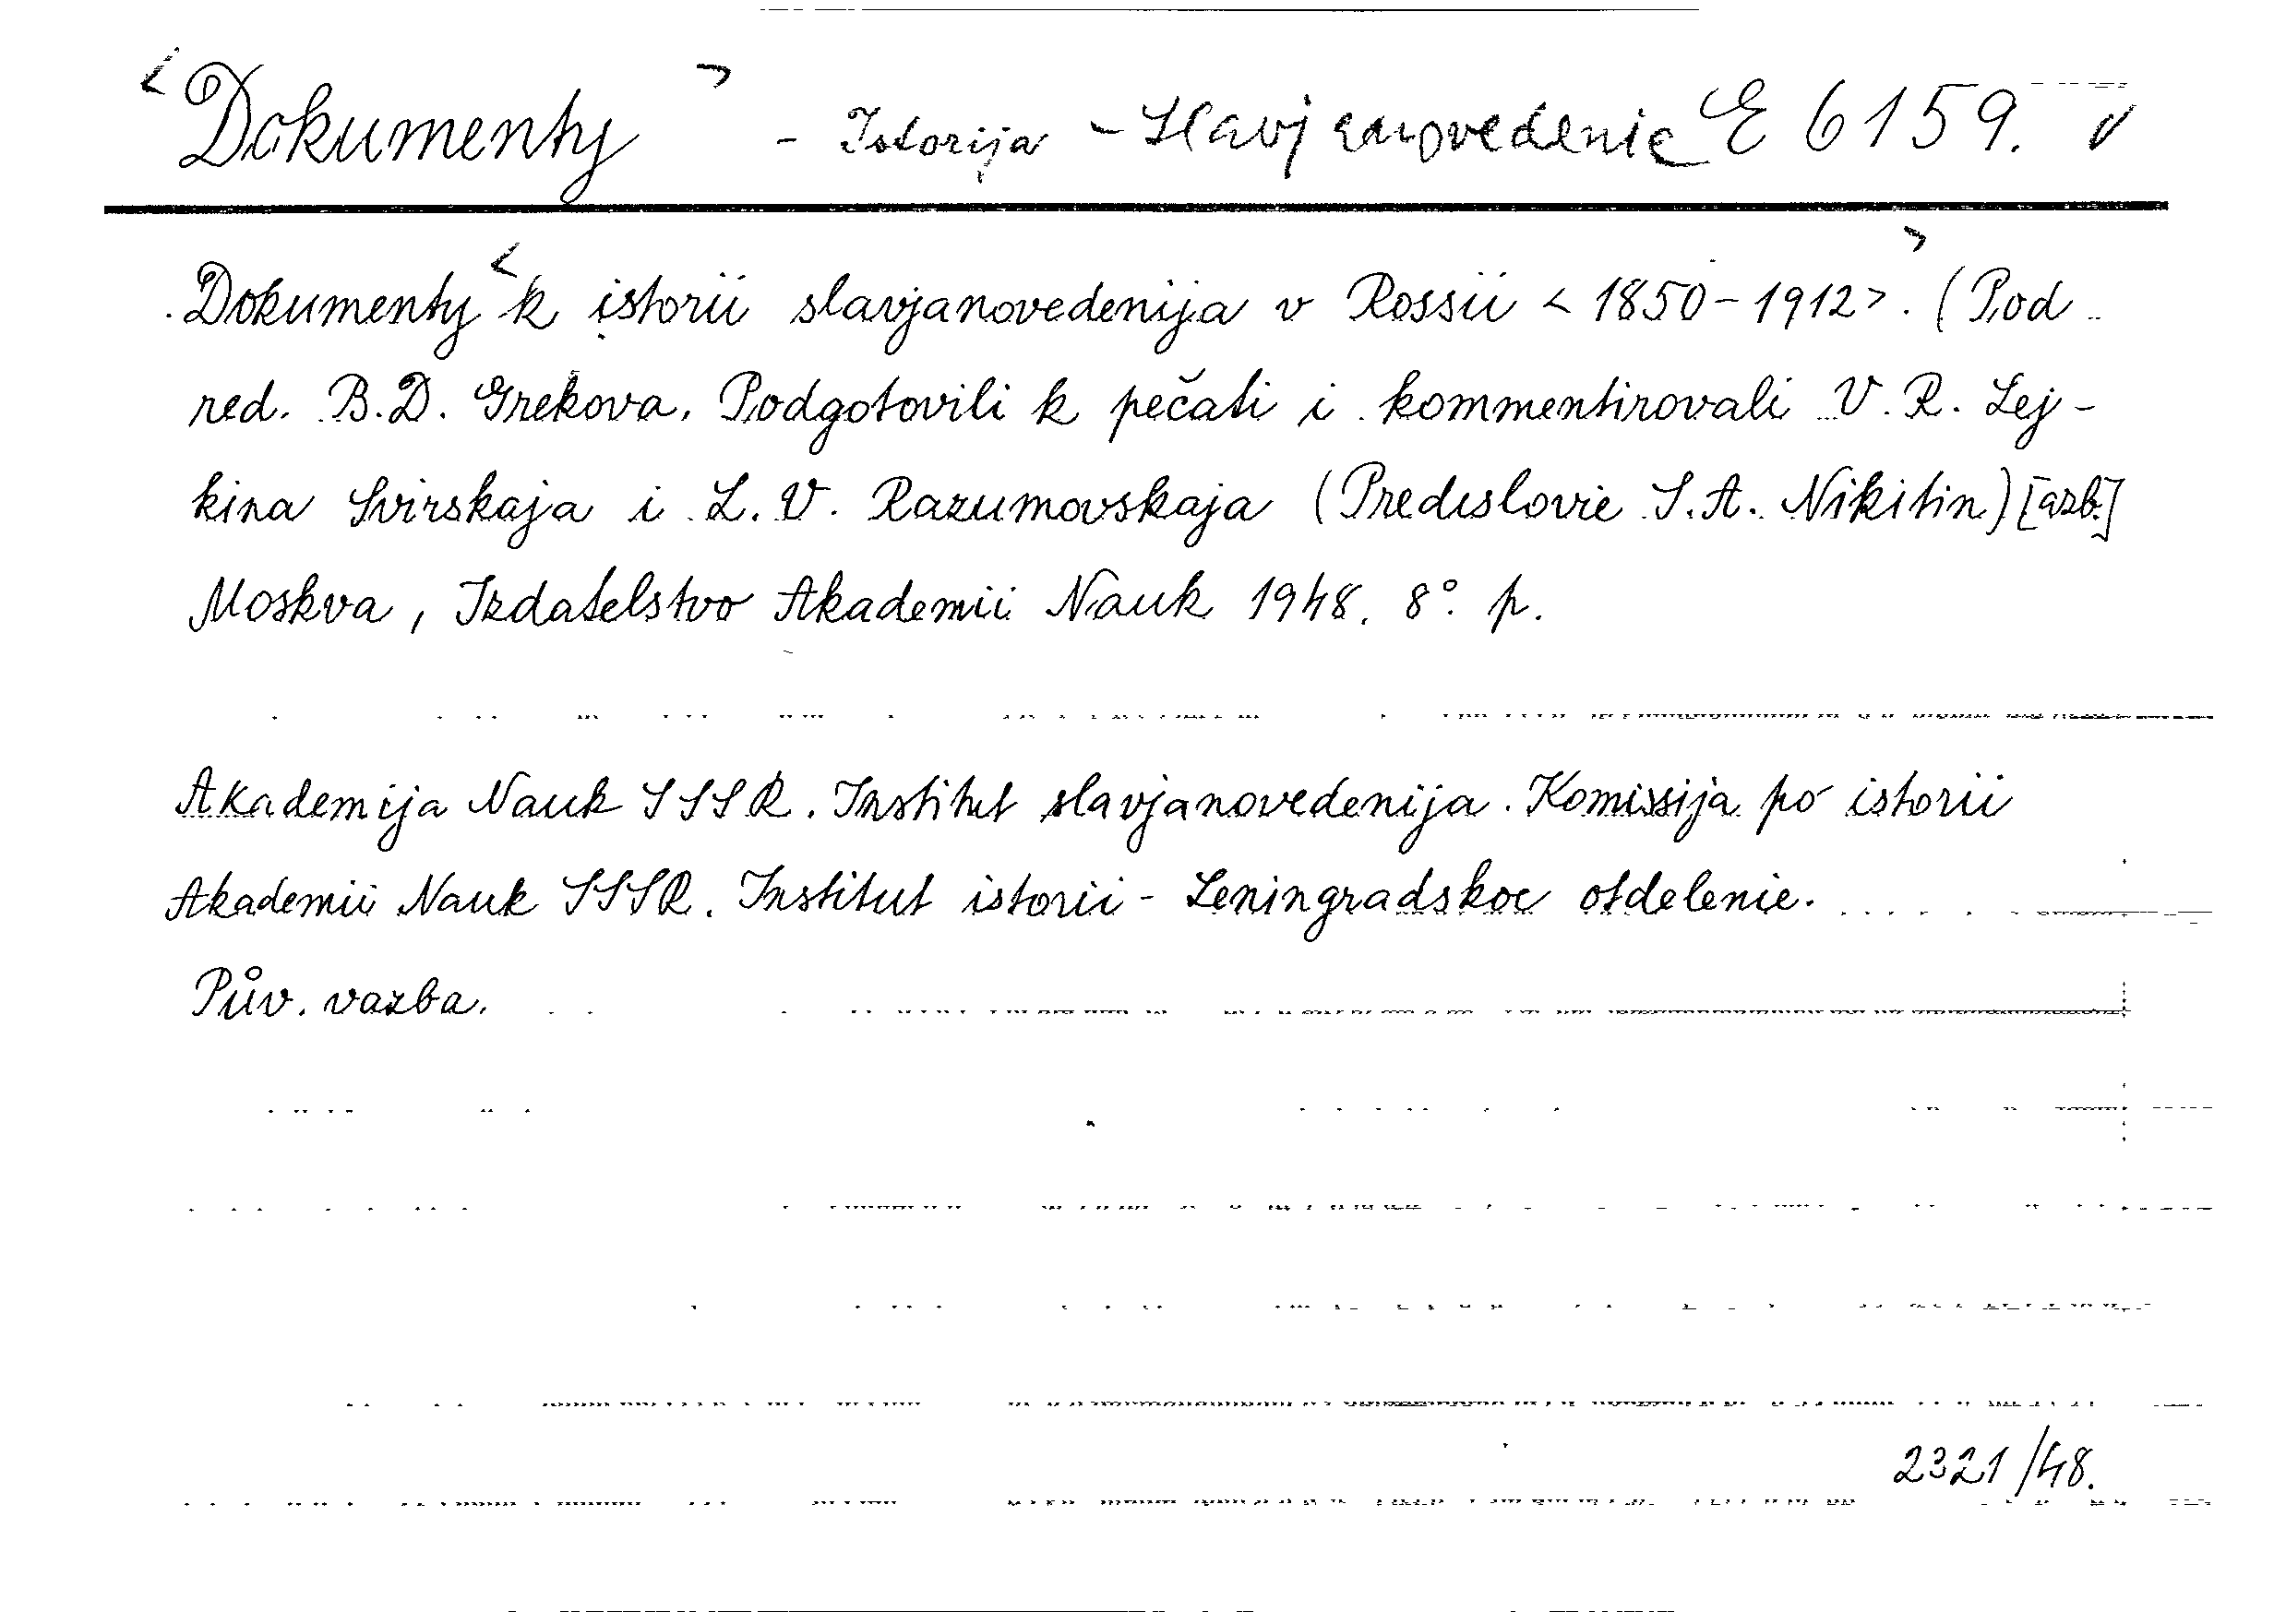 <Dokumenty> - Istorija - Slavjanovedenie E 6159. v
Dokumenty <k istorii slavjanovedenija v Rossii < 1850-1912>>. (Pod
red. B.D. Grekova, Podgotovili k pečati i kommentirovali V. R. Lej-
kina Svirskaja i L. V. Razumovskaja (Predislovie S. A. Nikitin) [azb.]
Moskva, Izdatelstvo Akademii Nauk 1948. 8° p.
Akademija Nauk SSSR. Institut slavjanovedenija. Komissija po istorii
Akademii Nauk SSSR. Institut istorii - Leningradskoe otdelenie.
Pův. vazba.
2321/48.